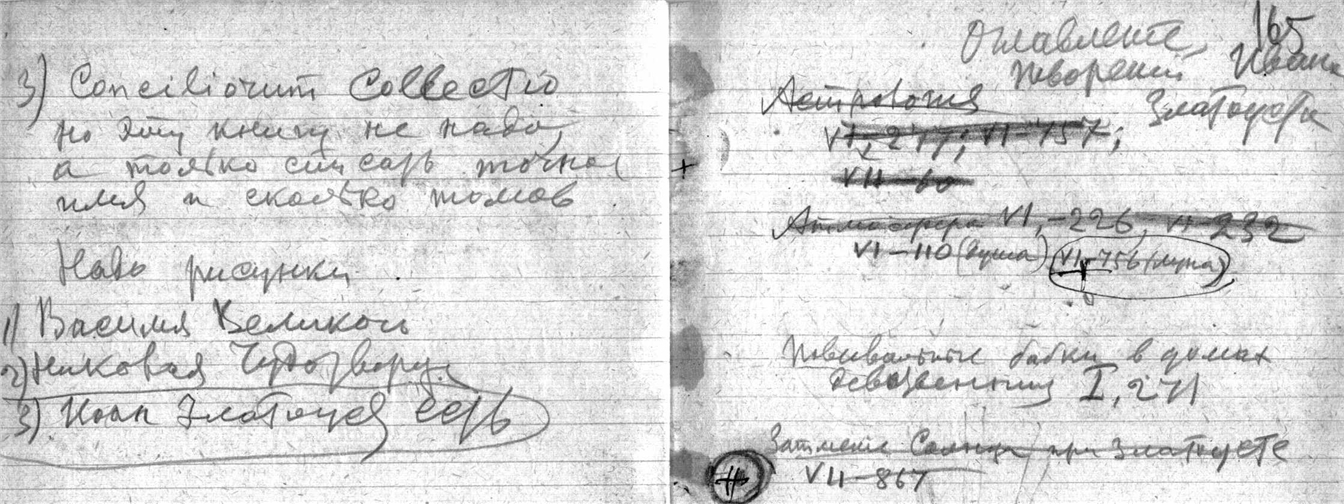 3) Conciliorum Collectio
но эту книгу не надо,
а только списать точно
имя и сколько томов
Надо рисунки
1) Василия Великого
2) Николая Чудотворца
3) Иоан Златоуст есть
165
Оглавление
творений Ивана
Златоуста
Астрология
VI, 247; VI-757;
VII-60
Атмосфера VI,-226, VI 232
VI-110 (душа) VI-756 (луна)
Повивальные бабки в домах
девственниц I, 271
Затмение Солнца при Златоусте
VII-867